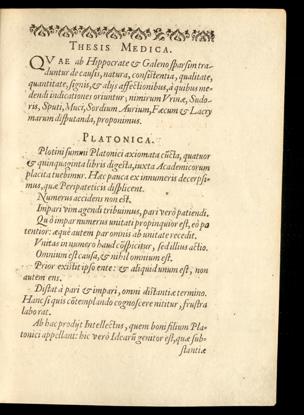 THESIS MEDICA.
QVAE ab Hippocrate & Galeno sparsim tra-
duntur de causis, natura, consistentia, qualitate,
quantitate, signis, & alijs affectionibus, à quibus me-
dendi indicationes oriuntur, nimirum Vrinæ, Sudo-
ris, Sputi, Muci, Sordium Aurium, Fæcum & Lacry
marum disputanda, proponimus.
PLATONICA.
Plotini summi Platonici axiomata cūcta, quatuor
& quinquaginta libris digesta, iuxta Academicorum
placita tuebimur. Hæc pauca ex innumeris decerpsi-
mus, quæ Peripateticis displicent.
Numerus accidens non est.
Impari vim agendi tribuimus, pari verò patiendi.
Quò impar numerus unitati propinquior est, eò po
tentior: æquè autem par omnis ab unitate recedit.
Vnitas in numero haud cōspicitur, sed illius actio.
Omnium est causa, & nihil omnium est.
Prior existit ipso ente: & aliquid unum est, non
autem ens.
Distat à pari & impari, omni distātiæ termino.
Hanc si quis cōtemplando cognoscere nititur, frustra
laborat.
Ab hac prodijt Intellectus, quem boni filium Pla-
tonici appellant: hic verò Idearū genitor est, quæ sub-
stantiæ